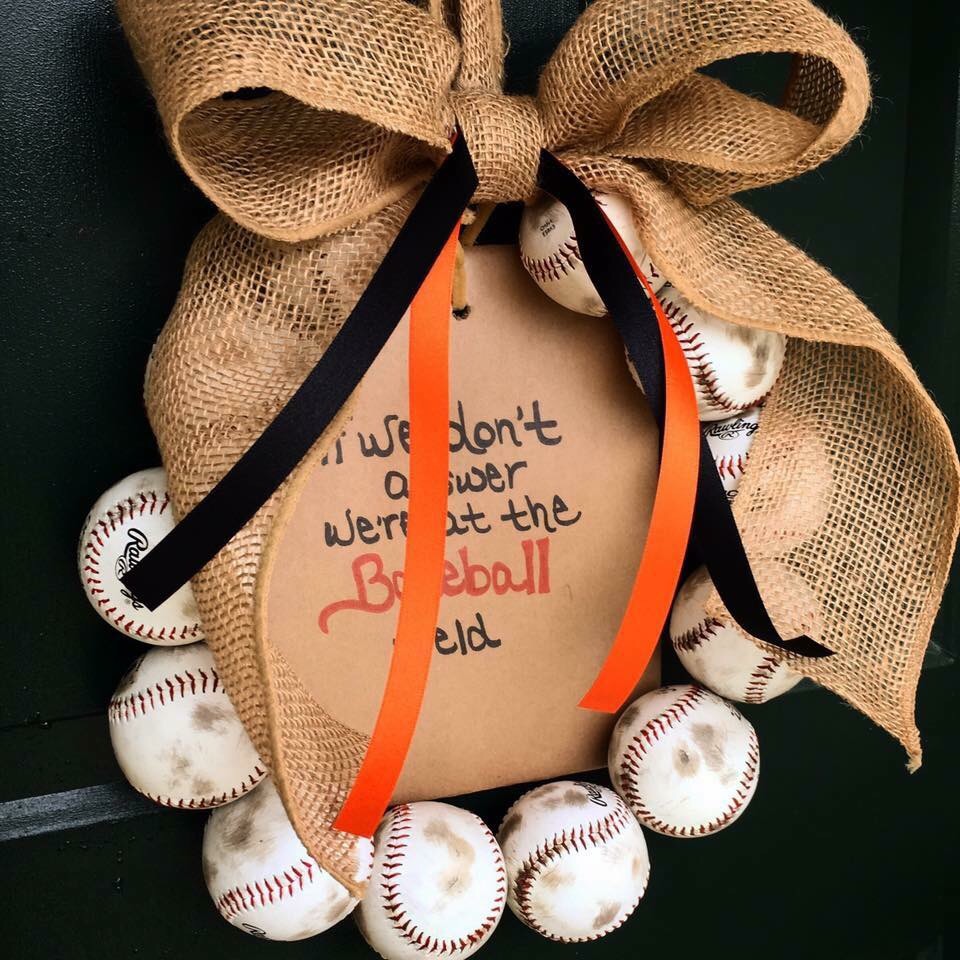 If we don't
answer
we're at the
Baseball
field
Rawlings
Rawlings